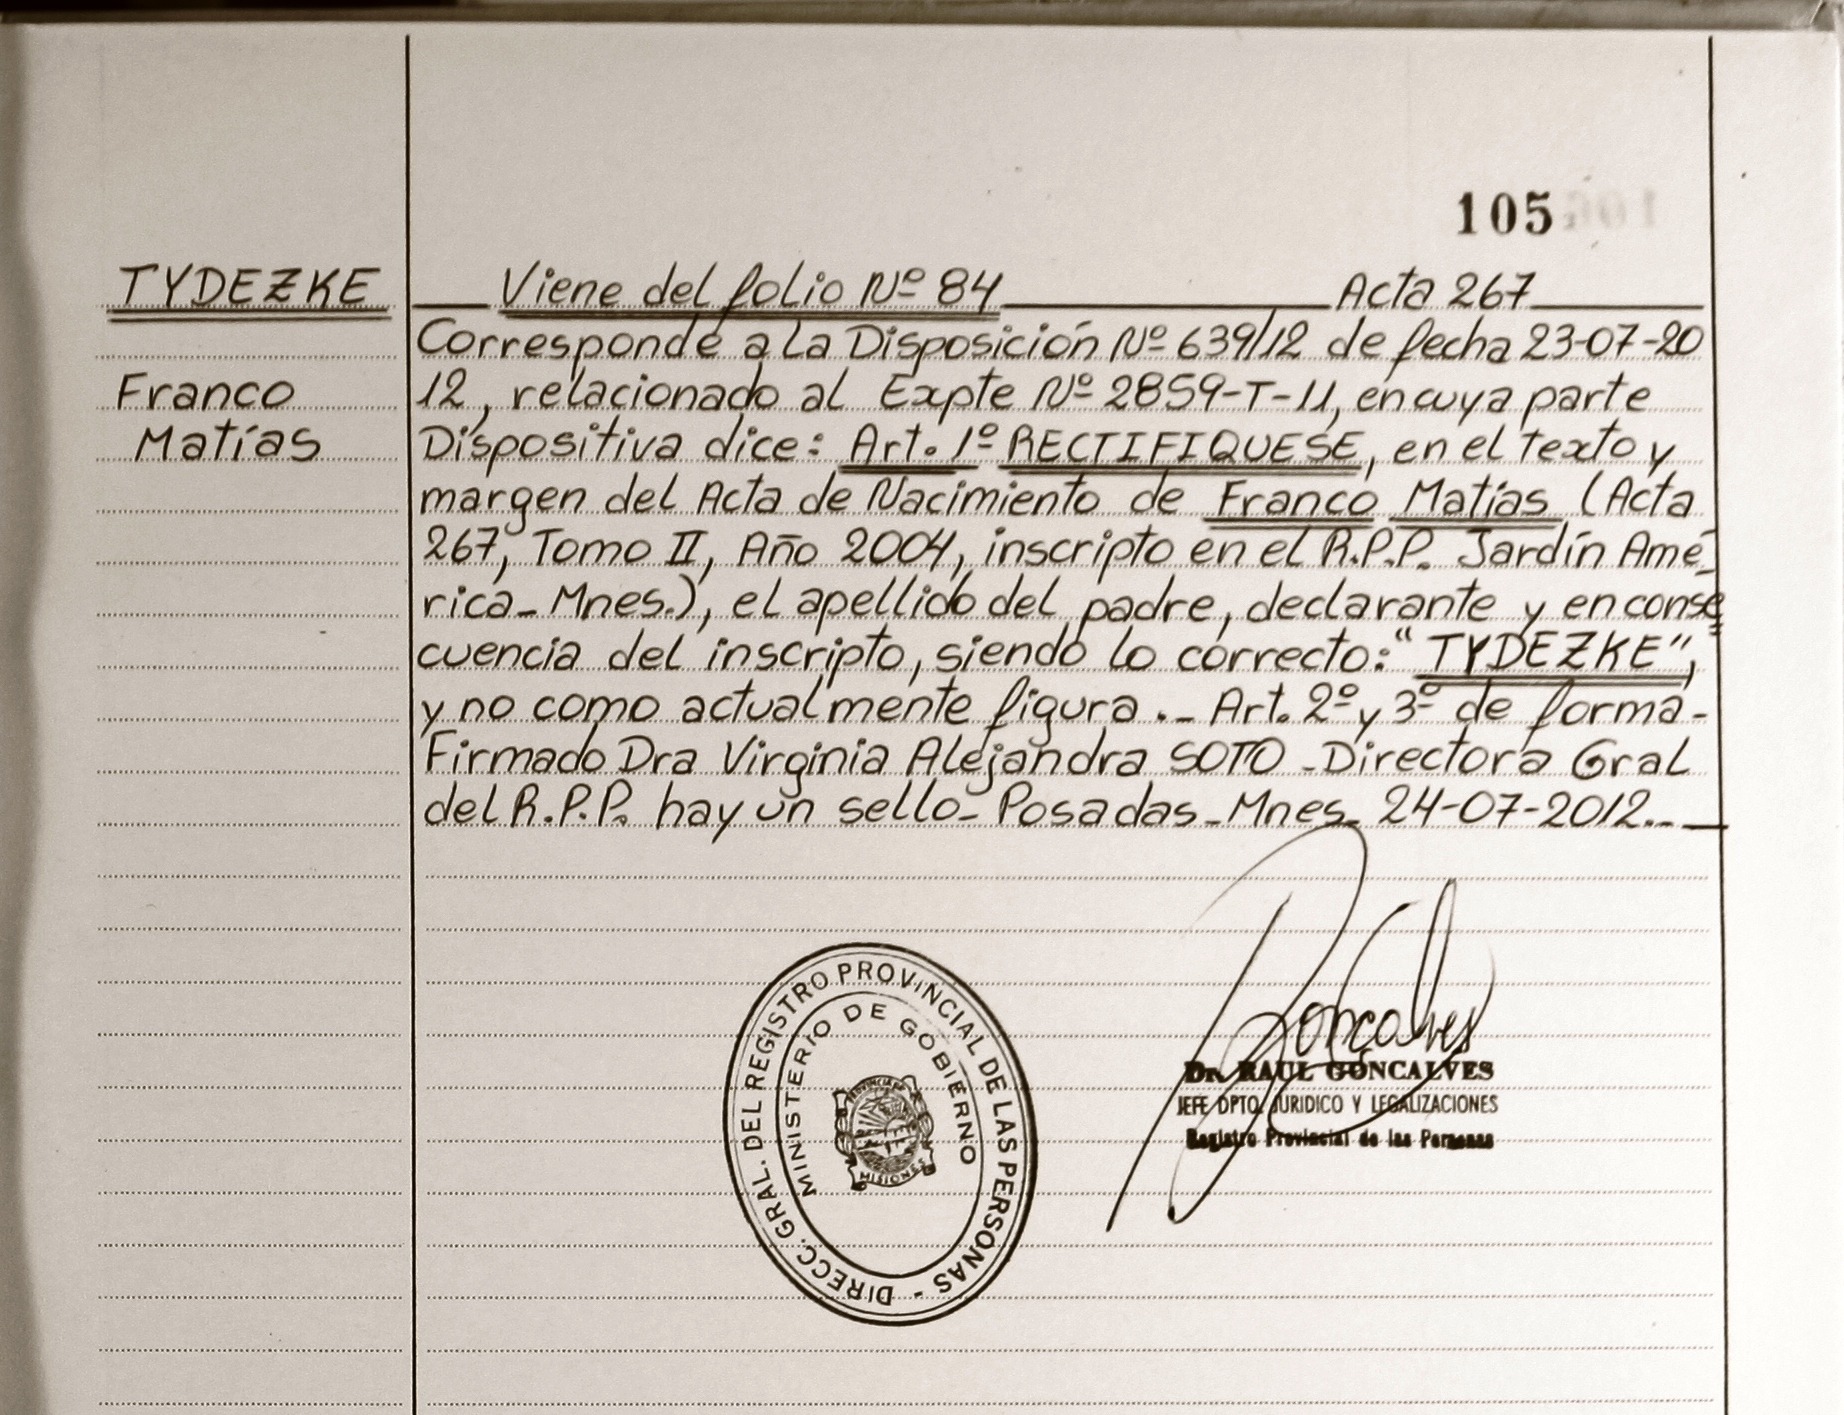 105
TYDEZKE
Franco
Matías
Viene del folio Nº 84 Acta 267
Corresponde a la Disposición Nº 639/12 de fecha 23-07-20
12, relacionado al Expte Nº 2859-T-11, en cuya parte
Dispositiva dice: Art. 1º RECTIFIQUESE, en el texto y
margen del Acta de Nacimiento de Franco Matías (Acta
267, Tomo II, Año 2004, inscripto en el R.P.P. Jardín Amé-
rica_ Mnes.), el apellido del padre, declarante y en conse
cuencia del inscripto, siendo lo correcto: "TYDEZKE",
y no como actualmente figura ._ Art. 2º y 3º de forma-
Firmado Dra Virginia Alejandra SOTO _Directora Gral
del R.P.P. hay un sello_ Posadas_Mnes_ 24-07-2012._
DIRECC. GRAL. DEL REGISTRO PROVINCIAL DE LAS PERSONAS -
MINISTERIO DE GOBIERNO
PROVINCIA DE
MISIONES
Goncalves
Dr. RAUL GONCALVES
JEFE DPTO. JURIDICO Y LEGALIZACIONES
Registro Provincial de las Personas